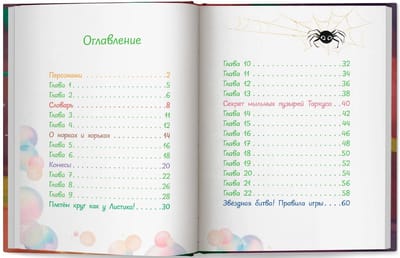 Оглавление
Персонажи 2
Глава 1 5
Глава 2 6
Словарь 8
Глава 3 11
Глава 4 12
О норках и хорьках 14
Глава 5 16
Глава 6 18
Конусы 20
Глава 7 22
Глава 8 26
Глава 9 28
Плетём круг как у Листика! 30
Глава 10 32
Глава 11 34
Глава 12 36
Глава 13 38
Секрет мыльных пузырей Таркуса 40
Глава 14 42
Глава 15 44
Глава 16 46
Глава 17 48
Глава 18 50
Глава 19 52
Глава 20 54
Глава 21 56
Глава 22 58
Звёздная битва! Правила игры 60